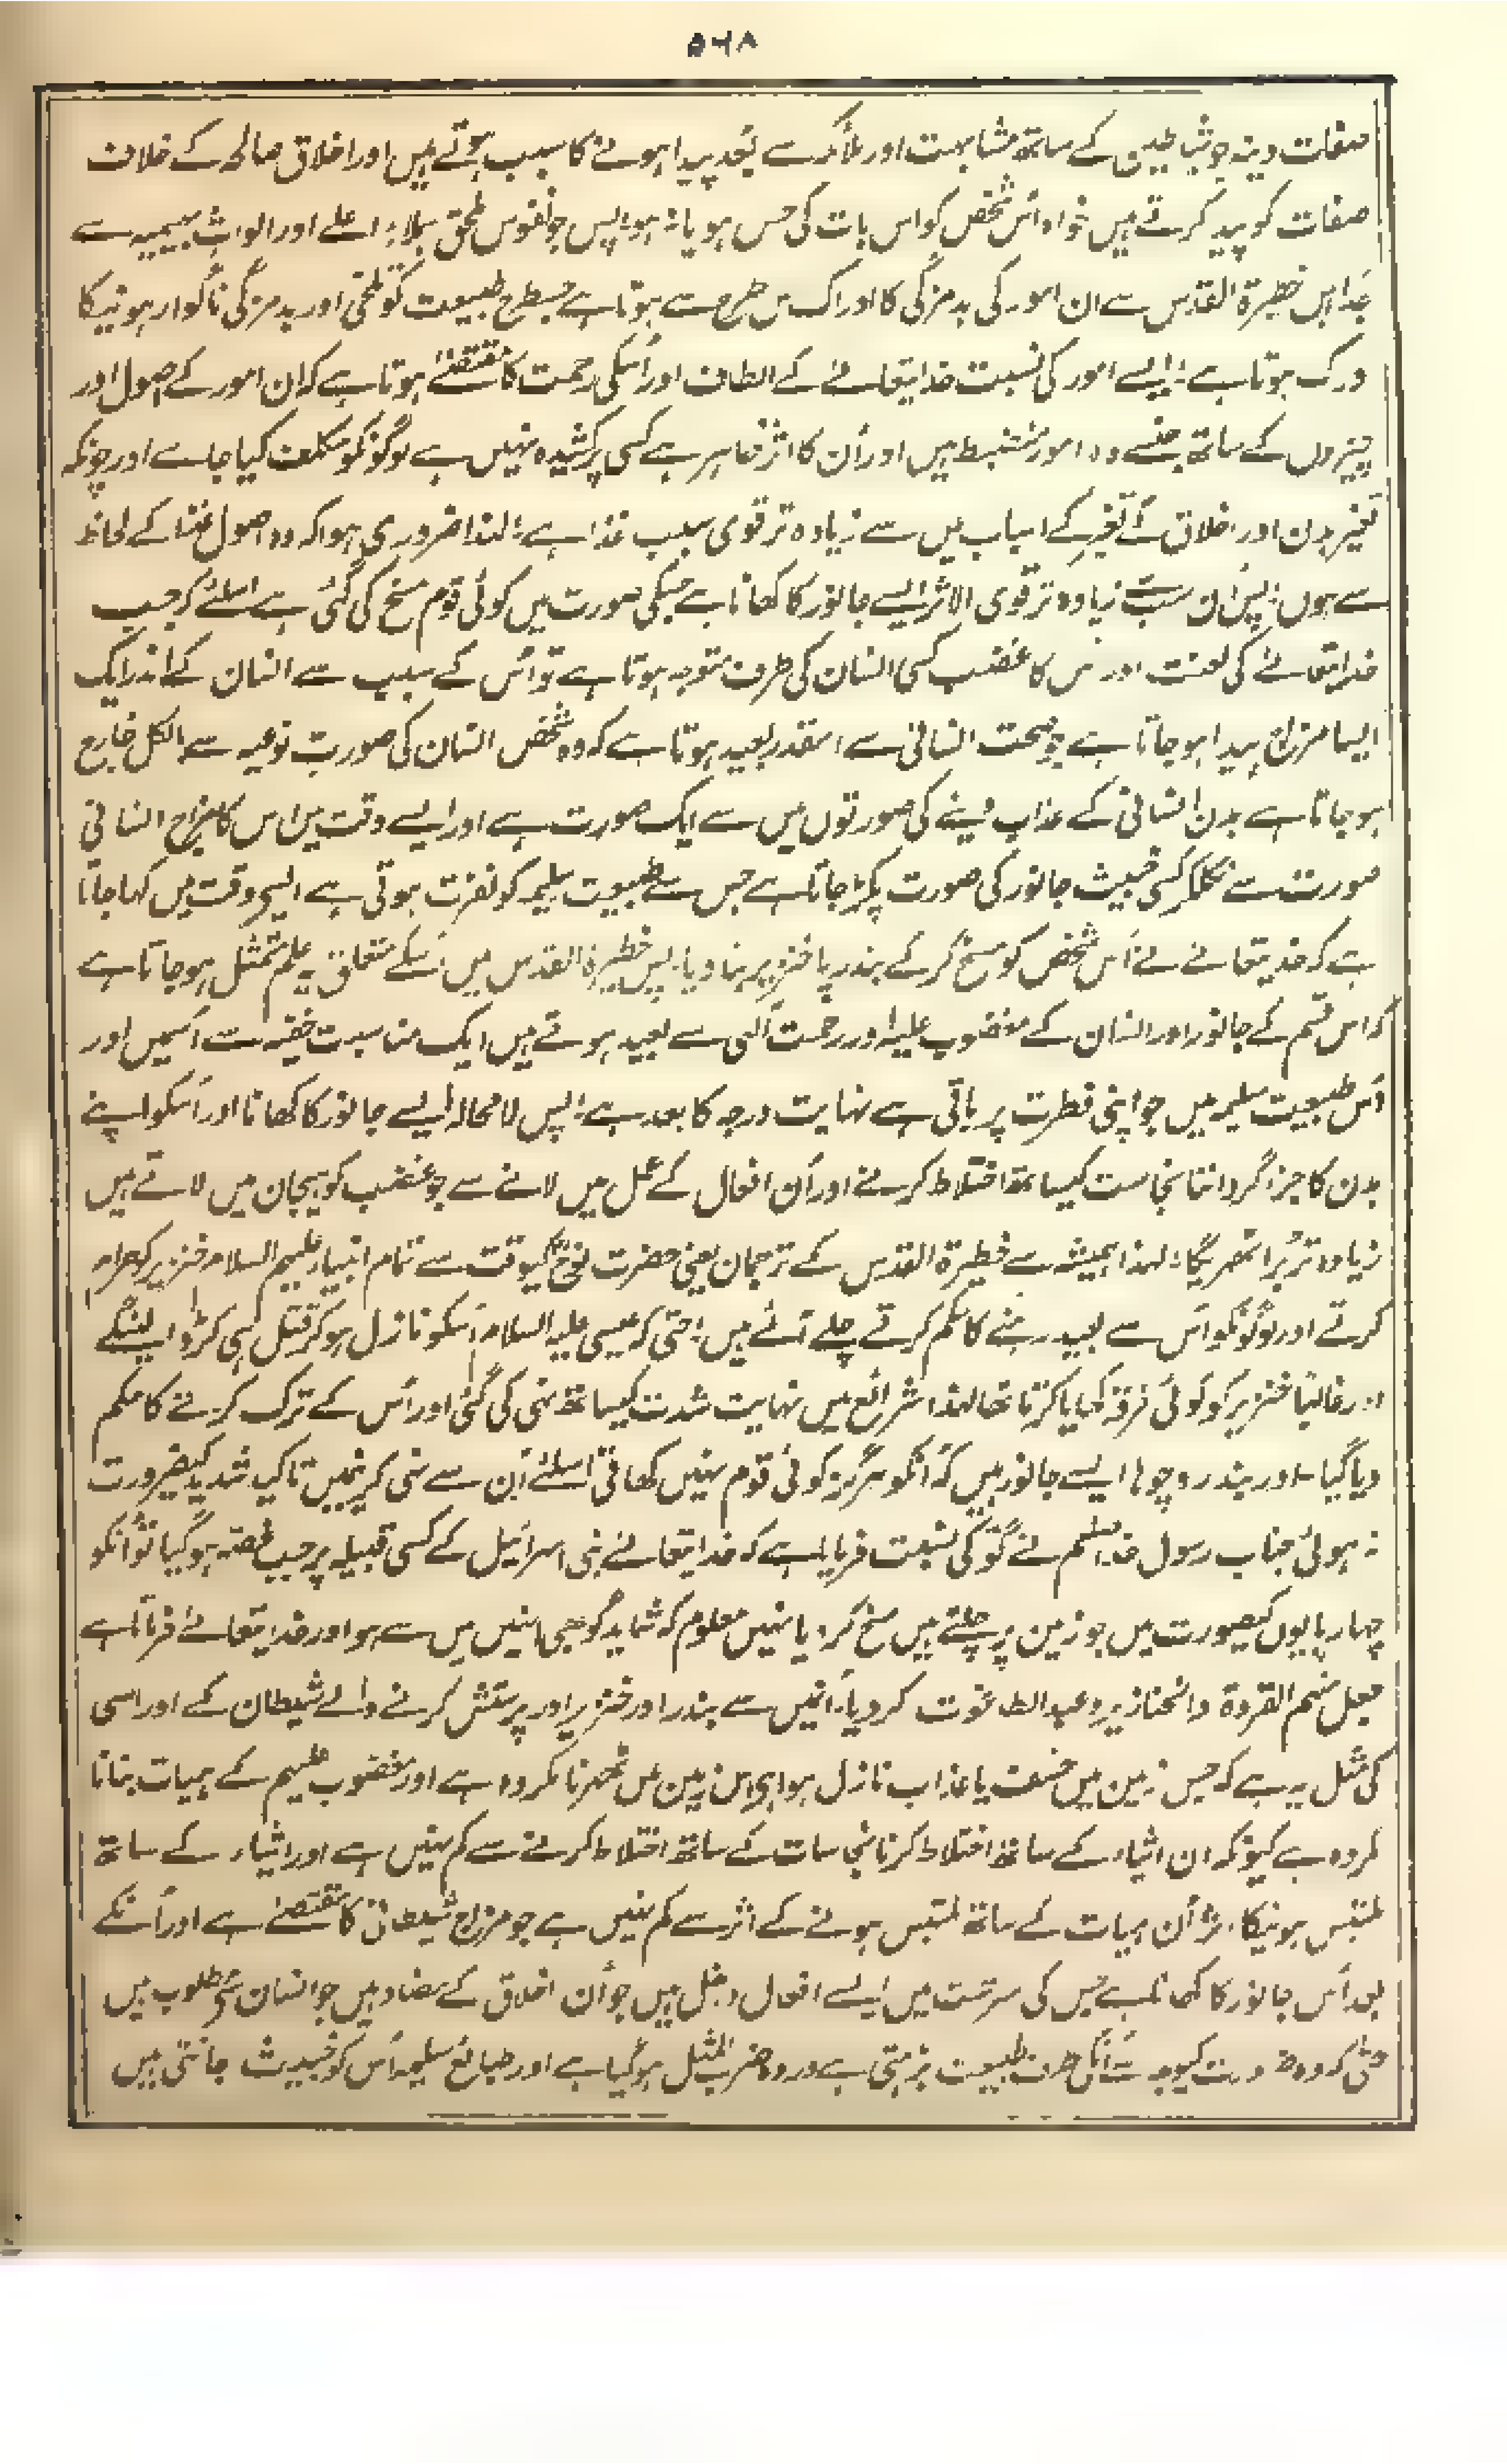 ۵۶۸
صفات دنیہ جو شیاطین کے ساتھ مشابہت اور ملائکہ سے بُعد پیدا ہونے کا سبب ہوتے ہیں اور اخلاق صالحہ کے خلاف
صفات کو پید کرتے ہیں خواہ اُس شخص کو اس بات کی حس ہو یا نہ ہو، پس جو نفوس ملحق بملاء اعلے اور الواث بہیمیہ سے
جدا ہیں خطیرۃ القدس سے ان امور کی بدمزگی کا ادراک اس طرح سے ہوتا ہے جسطرح طبیعت کو تلخی اور بدمزگی ناگوار ہونیکا
درک ہوتا ہے، ایسے امور کی نسبت خدایتعالے کے الطاف اور اُسکی رحمت کا مقتضےٰ ہوتا ہے کہ ان امور کے اصول اور
چیزوں کے ساتھ جنسے وہ امور منضبط ہیں اور اُن کا اثر ظاہر ہے کسی پر پوشیدہ نہیں ہے لوگونکو مکلف کیا جاے اور چونکہ
تغیر بدن اور اخلاق کے تغیر کے اسباب میں سے زیادہ تر قوی سبب غذا ہے، لہذا ضروری ہوا کہ وہ اصول غذا کے لحاظ
سے ہوں، پس ان سب سے زیادہ تر قوی الاثر ایسے جانور کا کھانا ہے جسکی صورت میں کوئی قوم مسخ کی گئی ہے اسلئے کہ جب
خدایتعالے کی لعنت اور اس کا غضب کسی انسان کی طرف متوجہ ہوتا ہے تو اُس کے سبب سے انسان کے اندر ایک
ایسا مزاج پیدا ہو جاتا ہے جو صحت انسانی سے اسقدر بعید ہوتا ہے کہ وہ شخص انسان کی صورت نوعیہ سے بالکل خارج
ہو جاتا ہے بدن انسانی کے عذاب دینے کی صورتوں میں سے ایک صورت ہے اور ایسے وقت میں اس کا مزاج انسانی
صورت سے نکلکر کسی خبیث جانور کی صورت پکڑ جاتا ہے جس سے طبیعت سلیمہ کو نفرت ہوتی ہے ایسے وقت میں کہا جاتا
ہے کہ خدایتعالے نے اُس شخص کو مسخ کر کے بندر یا خنزیر بنا دیا، پس خطیرۃ القدس میں اُسکے متعلق یہ علم متمثل ہو جاتا ہے
کہ اس قسم کے جانور اور انسان کے مغضوب علیہ اور رحمت الٰہی سے بعید ہوتے میں ایک مناسبت خفیہ ہے اُسمیں اور
اُس طبیعت سلیمہ میں جو اپنی فطرت پر باقی ہے نہایت درجہ کا بعد ہے، پس لامحالہ ایسے جانور کا کھانا اور اُسکو اپنے
بدن کا جزء گرداننا نجاست کیساتھ اختلاط کرنے اور اُن افعال کے عمل میں لانے سے جو غضب کو ہیجان میں لاتے ہیں
زیادہ تر بُرا ٹھہریگا، لہذا ہمیشہ سے خطیرۃ القدس کے ترجمان یعنی حضرت نوح کیوقت سے تمام انبیاء علیہم السلام خنزیر کو حرام
کرتے اور لوگونکو اُس سے بعید رہنے کا حکم کرتے چلے آئے ہیں، حتی کہ عیسی علیہ السلام اُسکو نازل ہو کر قتل ہی کر ڈالینگے
اور غالباً خنزیر کو کوئی فرقہ کھایا کرتا تھا لہذا شرائع میں نہایت شدت کیساتھ نہی کی گئی اور اُس کے ترک کرنے کا حکم
دیا گیا۔ اور بندر و چوہا ایسے جانور ہیں کہ اُنکو ہرگز کوئی قوم نہیں کھاتی اسلئے اُن سے نہی کرنیمیں تاکید شدید کیضرورت
نہ ہوئی جناب رسول خدا صلعم نے گوہ کی نسبت فرمایا ہے کہ خدایتعالے بنی اسرائیل کے کسی قبیلہ پر جب غصہ ہو گیا تو اُنکو
چہارپایوں کیصورت میں جو زمین پر چلتے ہیں مسخ کر دیا نہیں معلوم کہ شاید گوہ بھی انہیں میں سے ہو اور خدایتعالے فرماتا ہے
جعل منہم القردۃ والخنازیر وعبد الطاغوت کر دیا، انمیں سے بندر اور خنزیر اور پرستش کرنے والے شیطان کے اور اسی
کی مثل یہ ہے کہ جس زمین میں خسف یا عذاب نازل ہوا ہو اس زمین میں ٹھہرنا مکروہ ہے اور مغضوب علیہم کے ہیات بنانا
مکروہ ہے کیونکہ ان اشیاء کے ساتھ اختلاط کرنا نجاسات کے ساتھ اختلاط کرنے سے کم نہیں ہے اور اشیاء کے ساتھ
ملتبس ہونیکا اثر اُن ہیات کے ساتھ ملتبس ہونے کے اثر سے کم نہیں ہے جو مزاج شیطانی کا مقتضےٰ ہے اور اُسکے
بعد اُس جانور کا کھانا ہے جس کی سرشت میں ایسے افعال داخل ہیں جو اُن اخلاق کے متضاد ہیں جو انسان سے مطلوب ہیں
حتٰی کہ وہ ضرورت کیوجہ سے اُنکی طرف طبیعت بڑہتی ہے اور وہ ضرب المثل ہو گیا ہے اور طبائع سلیمہ اُس کو خبیث جانتی ہیں